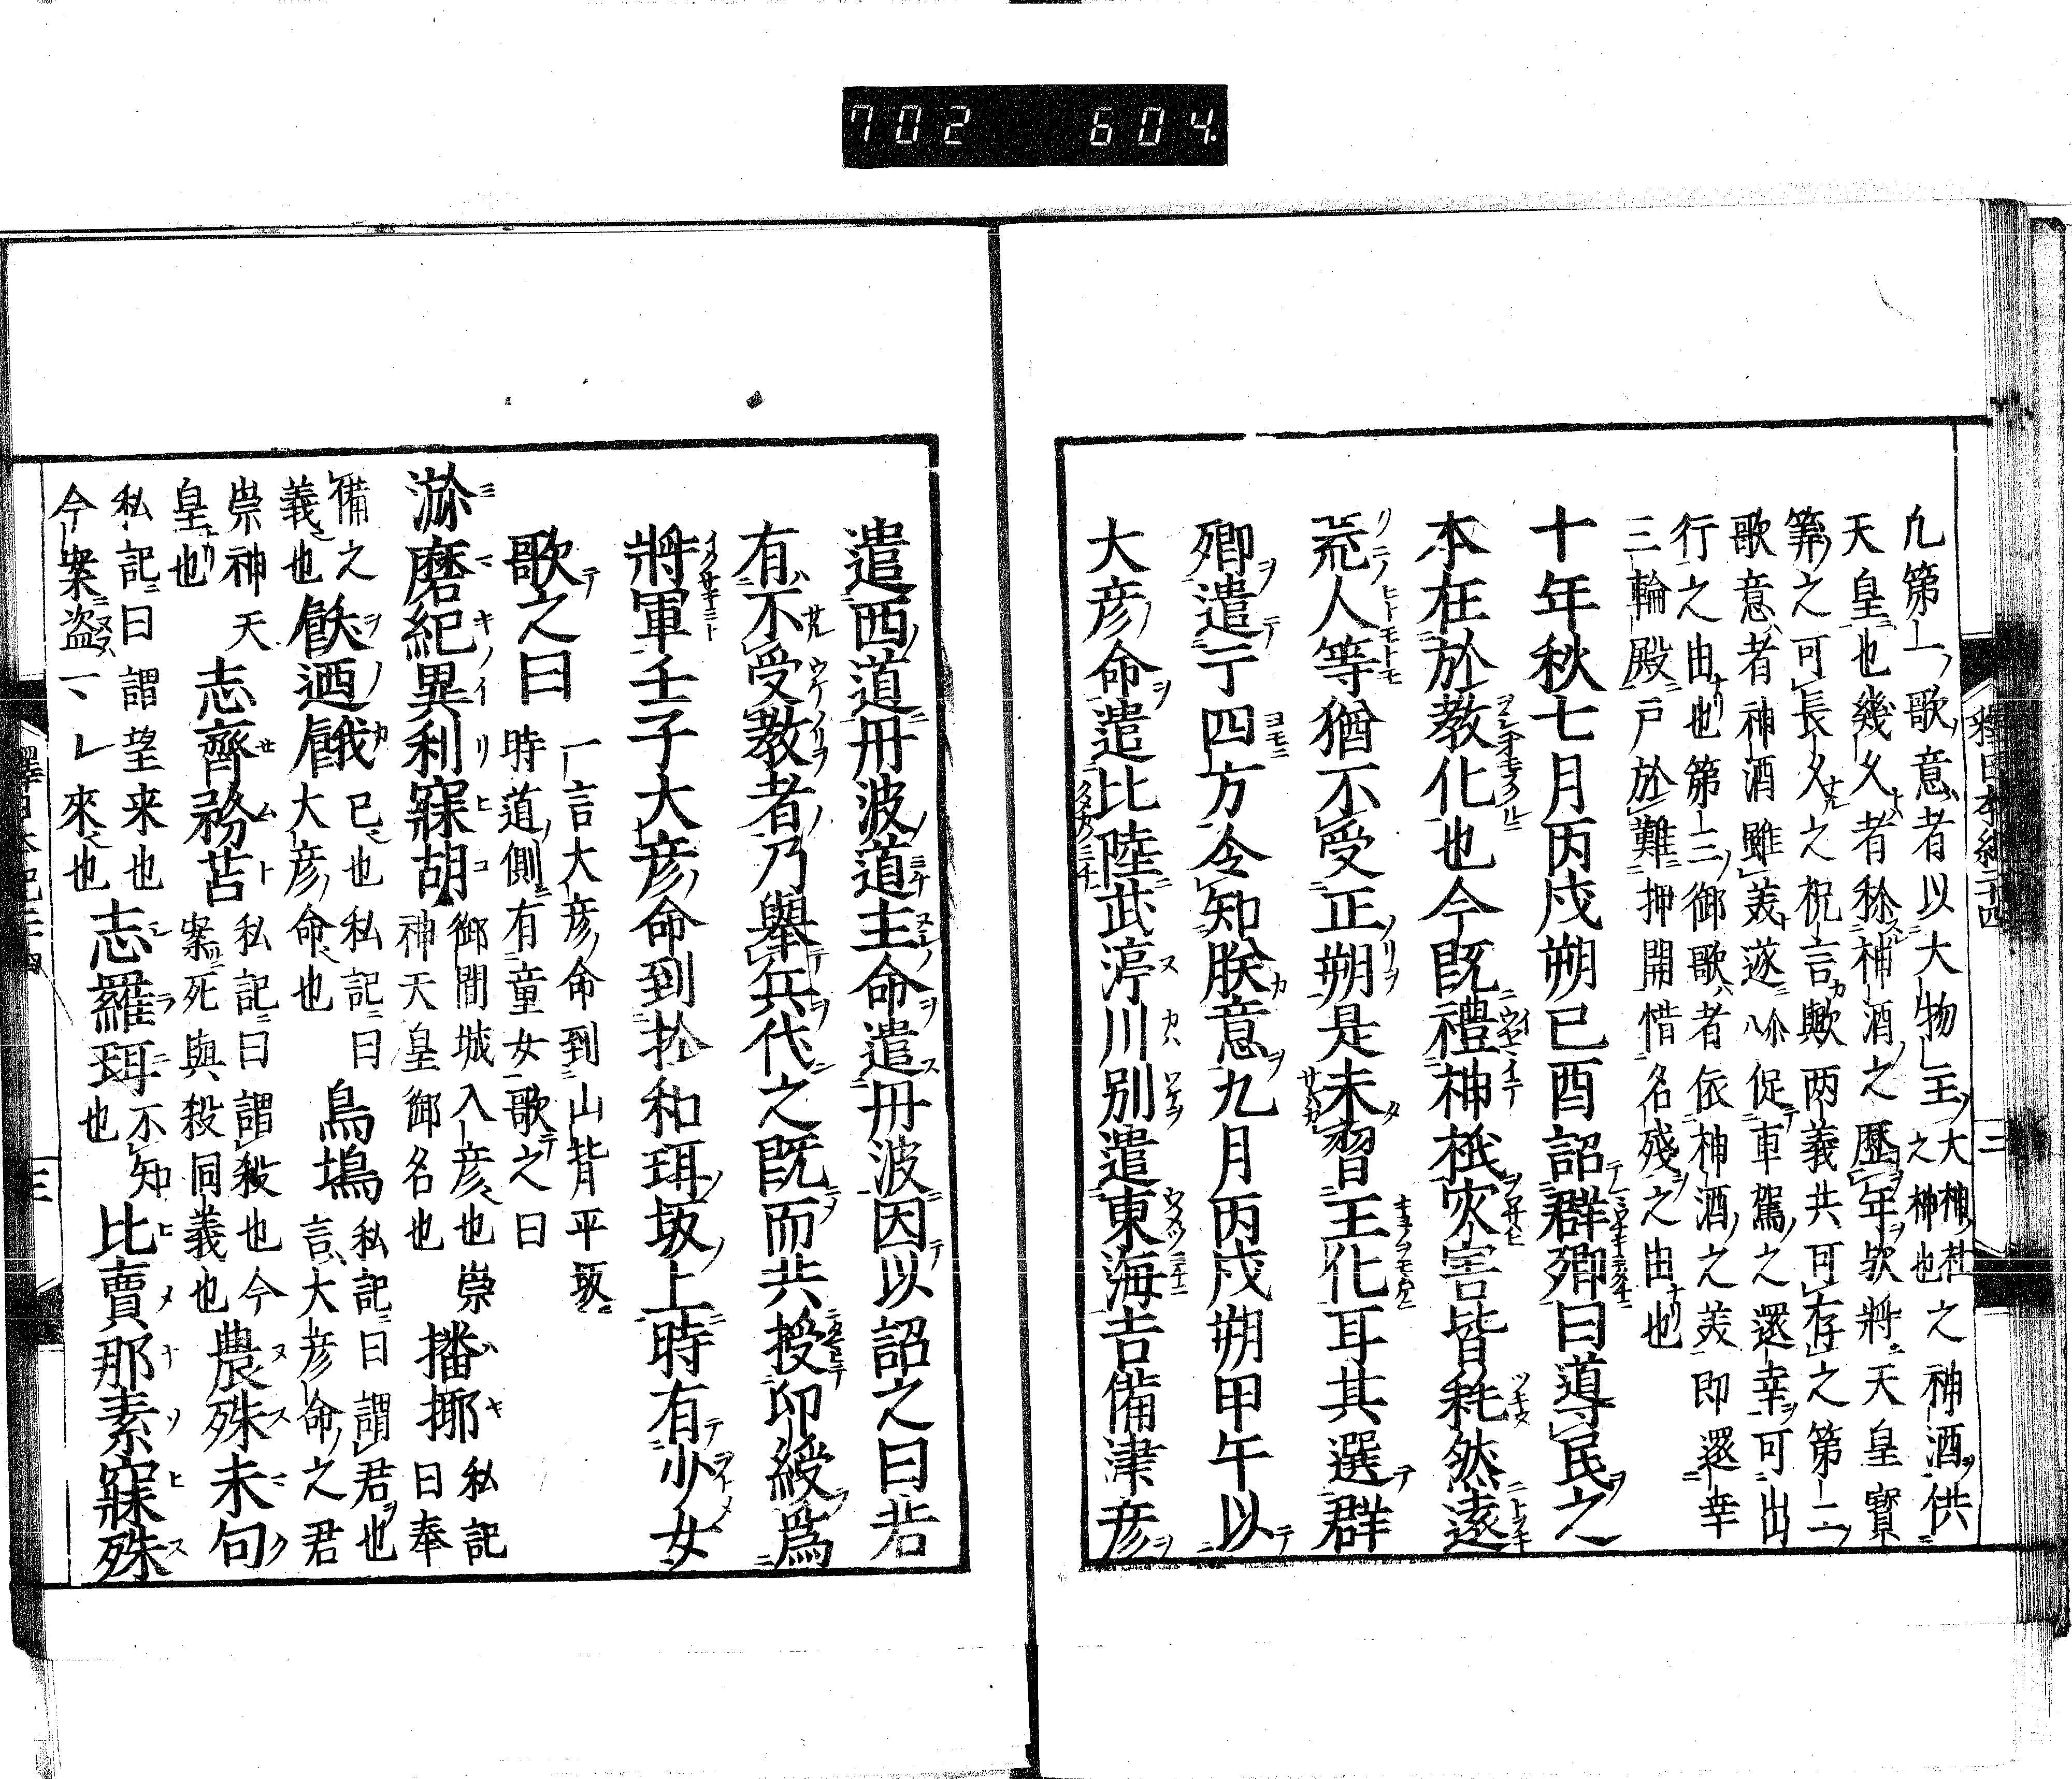 702 604
釋日本紀二十四
二
九第一ノ歌意ハ者以大物主ノ大神ノ社之神也之神酒ヲ供
天皇ニ也幾久者称神酒之歴年ヲ欤將天皇寳
筭ノ之可長久之祝言歟两義共可存之第二ノ
歌意ハ者神酒雖美遂ニ促車駕ノ之還幸ヲ可出
行之由也第三ノ御歌ハ者依神酒ノ之美即還幸
三輪殿ニ戸於難押開惜名殘之由也
十年秋七月丙戌朔己酉詔群卿曰導民之
本在於教化也今既禮神祇灾害皆耗然遠
荒人等猶不受正朔是未習王化耳其選群
卿遣于四方令知朕意九月丙戌朔甲午以
大彦命遣比陸武渟川別遣東海吉備津彦
遣西道丹波道主命遣丹波因以詔之曰若
有不受教者乃舉兵代之既而共授印綬爲
將軍壬子大彦命到於和珥坂上時有少女
歌之曰
一言大彦命到山背平坂
時道側有童女歌之曰
瀰磨紀異利寐胡
御間城入彦也崇
神天皇御名也
播揶
私記
曰奉
備之
義也
飫迺餓
已也私記曰
大彦命也
鳥塢
私記曰謂君也
言大彦命之君
崇神天
皇也
志齊務苫
私記曰謂殺也今
案死與殺同義也
農殊末句
私記曰謂望来也
今案盗一丶レ來也
志羅珥
不知
也
比賣那素寐殊
三